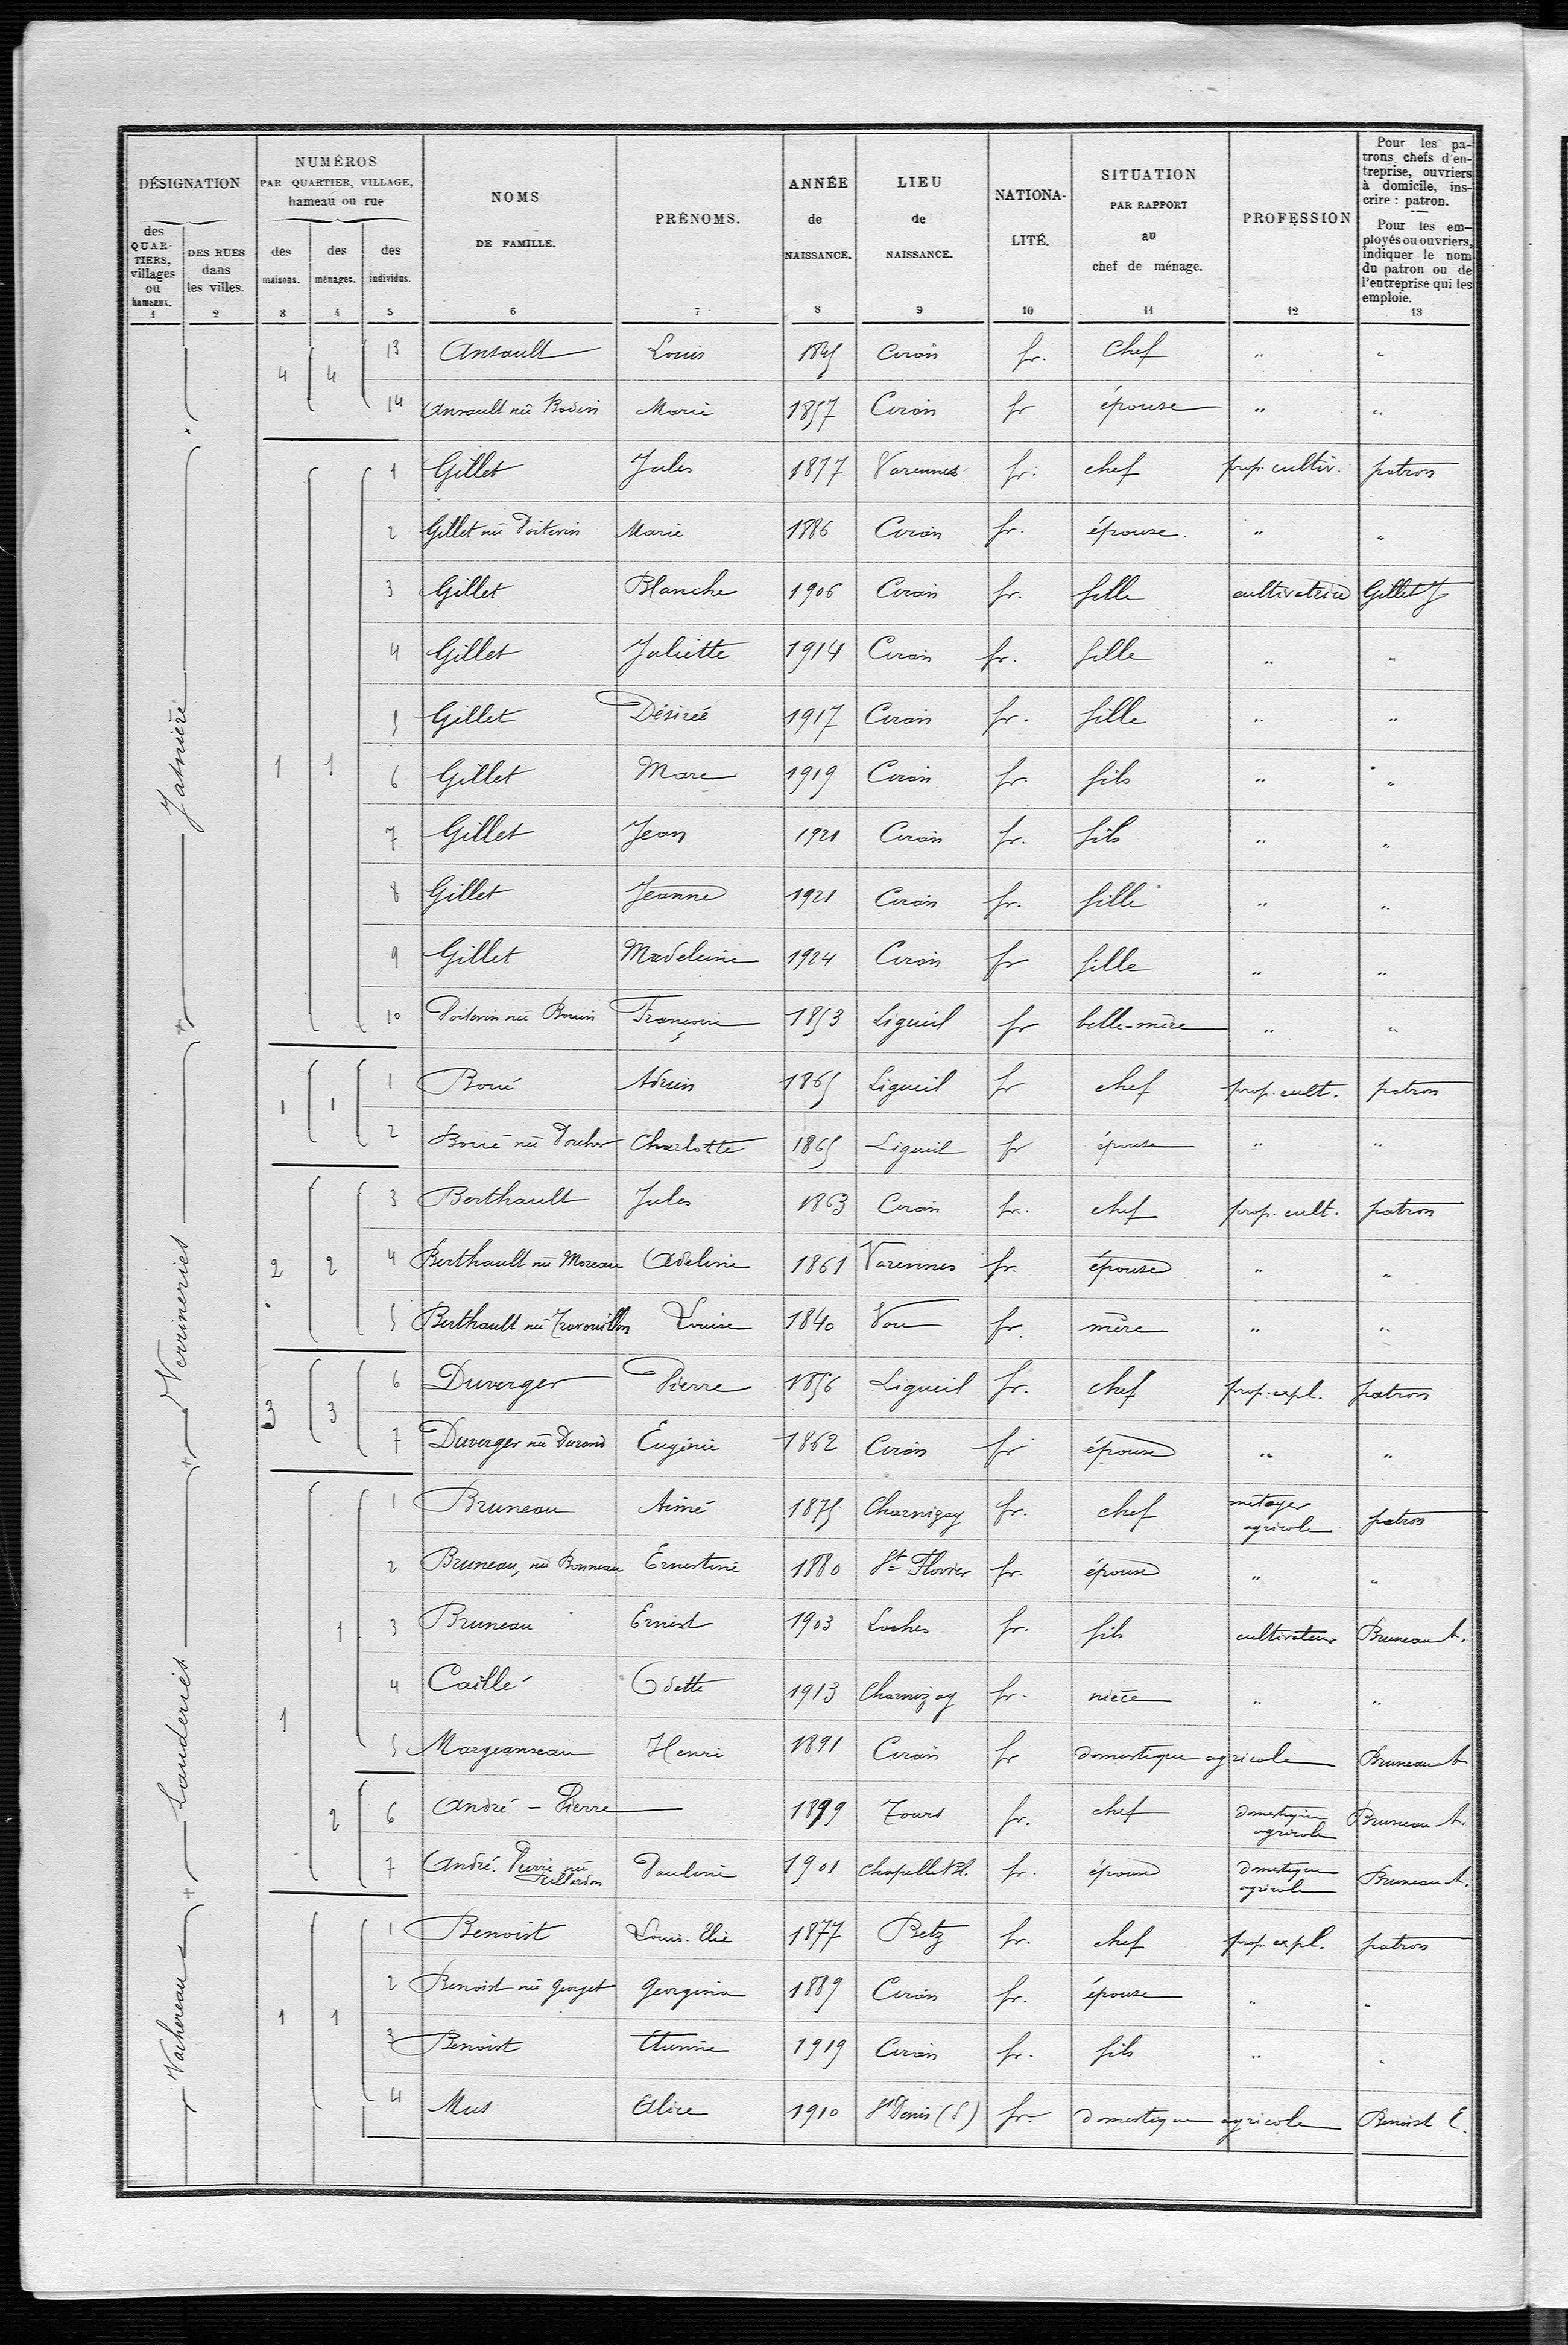 DÉSIGNATION
des QUARTIERS, villages ou hameaux.
DES RUES dans les villes.
NUMÉROS
PAR QUARTIER, VILLAGE,
hameau ou rue
des maisons.
des ménages.
des individus.
NOMS
DE FAMILLE.
PRÉNOMS.
ANNÉE
de
NAISSANCE.
LIEU
de
NAISSANCE.
NATIONA-
LITÉ.
SITUATION
PAR RAPPORT
au
chef de ménage.
PROFESSION
Pour les pa-
trons, chefs d'en-
treprise, ouvriers
à domicile, ins-
crire : patron.
Pour les em-
ployés ou ouvriers,
indiquer le nom
du patron ou de
l'entreprise qui les
emploie.
1 2 3 4 5 6 7 8 9 10 11 12 13
4 4 13 Ansault Louis 1845 Ciran fr. chef " "
14 Ansault née Bodin Marie 1857 Ciran fr épouse " "
1 Gillet Jules 1877 Varennes fr. chef prop. cultiv. patron
2 Gillet née Poitevin Marie 1886 Ciran fr. épouse " "
3 Gillet Blanche 1906 Ciran fr. fille cultivatrice Gillet J
4 Gillet Juliette 1914 Ciran fr. fille " "
5 Gillet Désirée 1917 Ciran fr. fille " "
1 1 6 Gillet Marc 1919 Ciran fr. fils " "
7 Gillet Jean 1921 Ciran fr. fils " "
8 Gillet Jeanne 1921 Ciran fr. fille " "
9 Gillet Madeleine 1924 Ciran fr fille " "
10 Poitevin née Bouin Françoise 1853 Ligueil fr belle-mère " "
1 1 1 Boué Adrien 1865 Ligueil fr chef prop. cult. patron
2 Boué née Charlotte 1865 Ligueil fr épouse " "
3 Berthault Jules 1863 Ciran fr. chef prop. cult. patron
2 2 4 Berthault née Moreau Adeline 1861 Varennes fr. épouse " "
5 Berthault née Travouillon Louise 1840 Vou fr. mère " "
3 3 6 Duverger Pierre 1856 Ligueil fr. chef prop. expl. patron
7 Duverger née Durand Eugénie 1862 Ciran fr épouse " "
1 Bruneau Aimé 1875 Charnizay fr. chef métayer agricole patron
2 Bruneau, née Bonneau Ernestine 1880 St Flovier fr. épouse " "
1 3 Bruneau Ernest 1903 Loches fr. fils cultivateur Bruneau A.
4 Caillé Odette 1913 Charnizay fr. nièce " "
1 5 Margeanseau Henri 1891 Ciran fr domestique agricole Bruneau A
2 6 André - Pierre 1899 Tours fr. chef domestique agricole Bruneau A.
7 André. Pierre née Pauline 1901 Chapelle Bl. fr. épouse domestique agricole Bruneau A.
1 Benoist Louis-Elie 1877 Betz fr. chef prop. expl. patron
2 Benoist née Georget Georgina 1889 Ciran fr. épouse " "
1 1 3 Benoist Etienne 1919 Ciran fr. fils " "
4 Mus Alice 1910 St Denis (S) fr. domestique agricole Benoist E.
Vachereau
Lauderies
Verrineries